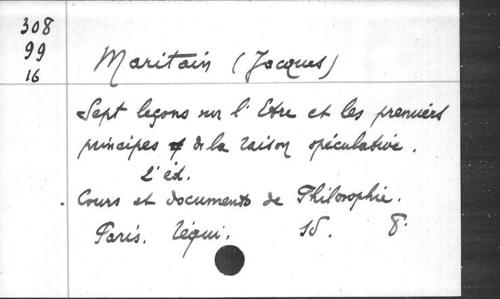 308
99
16
Maritain (Jacques)
Sept leçons sur l'Etre et les premiers
principes de la raison spéculative.
2'éd.
Cours et documents de Philosophie.
Paris. Téqui. 8°.